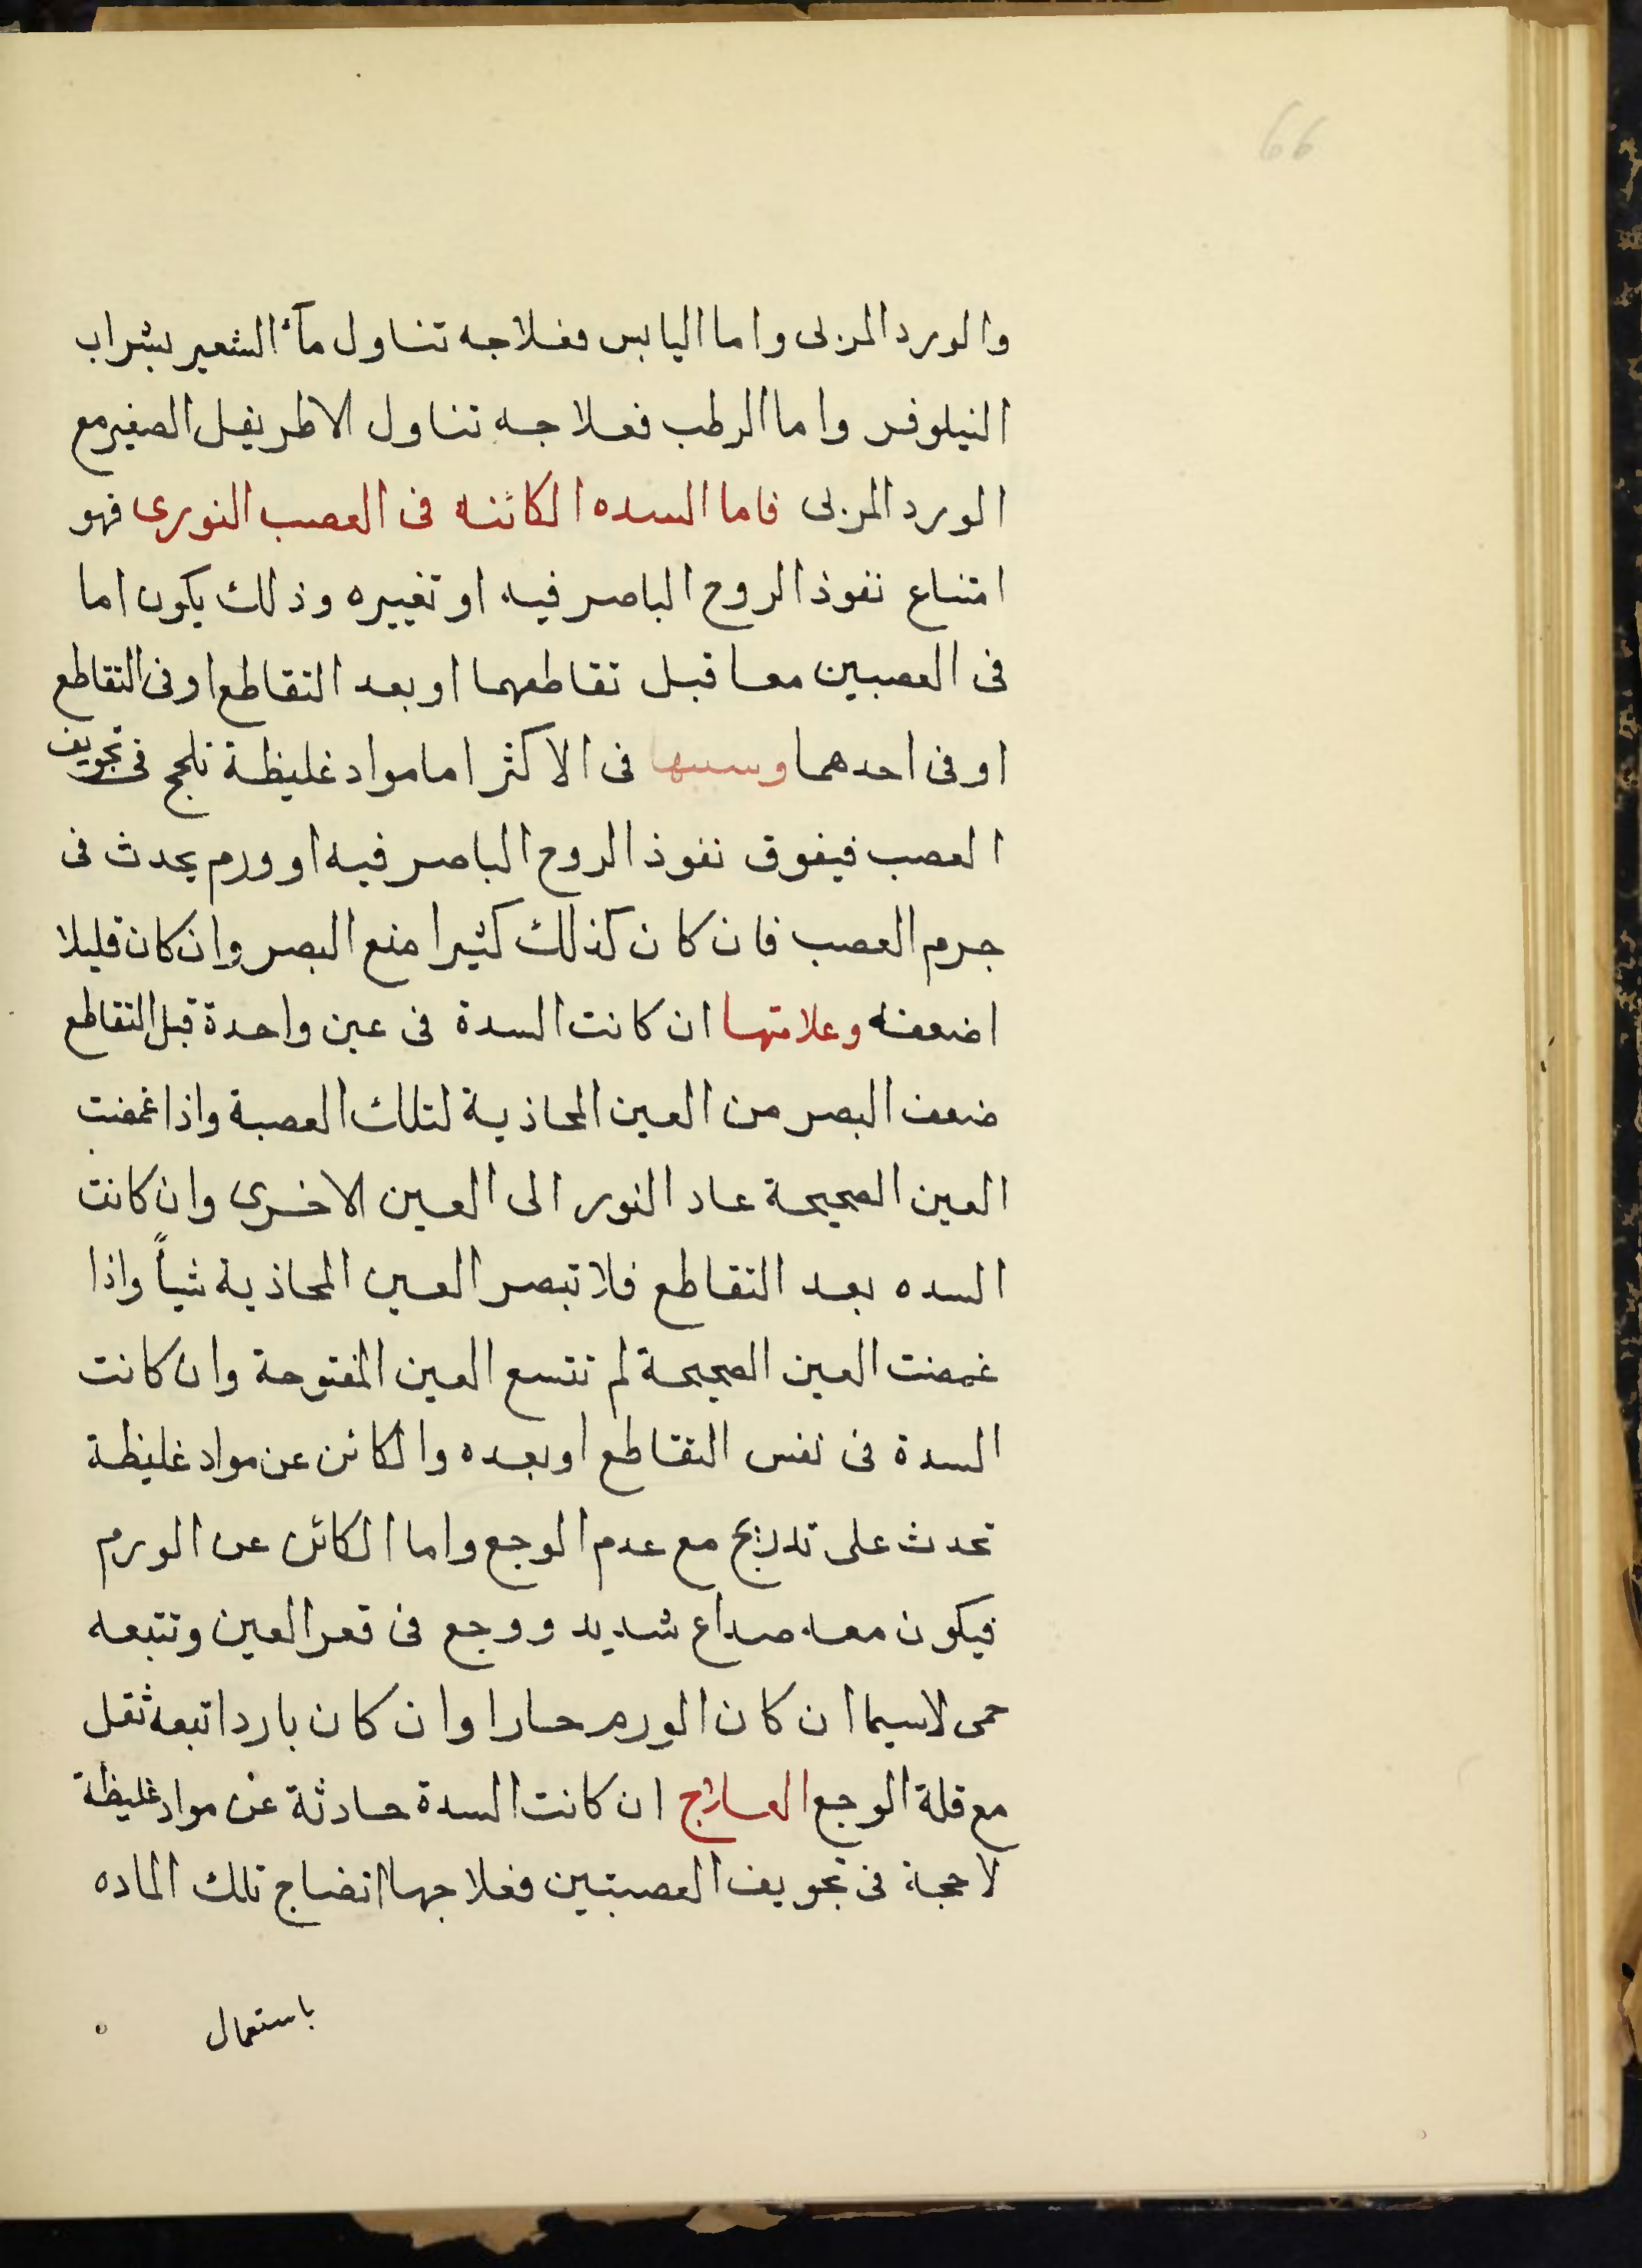 66
والورد المربى واما اليابس فعلاجه تناول مآء الشعير بشراب
النيلوفر واما الرطب فعلاجه تناول الاطريفل الصغير مع
الورد المربى فاما السده الكائنه فى العصب النورى فهو
امتناع نفوذ الروح الباصر فيه او تغييره وذلك يكون اما
فى العصبين معا قبل تقاطعهما او بعد التقاطع او فى التقاطع
او فى احدهما وسببها فى الاكثر اما مواد غليظة تلحج فى تجويف
العصب فيفوق نفوذ الروح الباصر فيه او ورم يحدث فى
جرم العصب فان كان كذلك كثيرا منع البصر وان كان قليلا
اضعفه وعلامتها ان كانت السدة فى عين واحدة قبل التقاطع
ضعف البصر من العين المحاذية لتلك العصبة واذا غمضت
العين الصحيحة عاد النور الى العين الاخرى وان كانت
السده بعد التقاطع فلا تبصر العين المحاذية شيأً واذا
غمضت العين الصحيحة لم تتسع العين المفتوحة وان كانت
السدة فى نفس التقاطع او بعده والكائن عن مواد غليظة
تحدث على تدريج مع عدم الوجع واما الكائن عن الورم
فيكون معه صداع شديد ووجع فى قعر العين وتتبعه
حمى لاسيما ان كان الورم حارا وان كان باردا تبعه ثقل
مع قلة الوجع العلاج ان كانت السدة حادثة عن مواد غليظة
لاحجة فى تجويف العصبتين فعلاجها انضاج تلك الماده
باستعمال